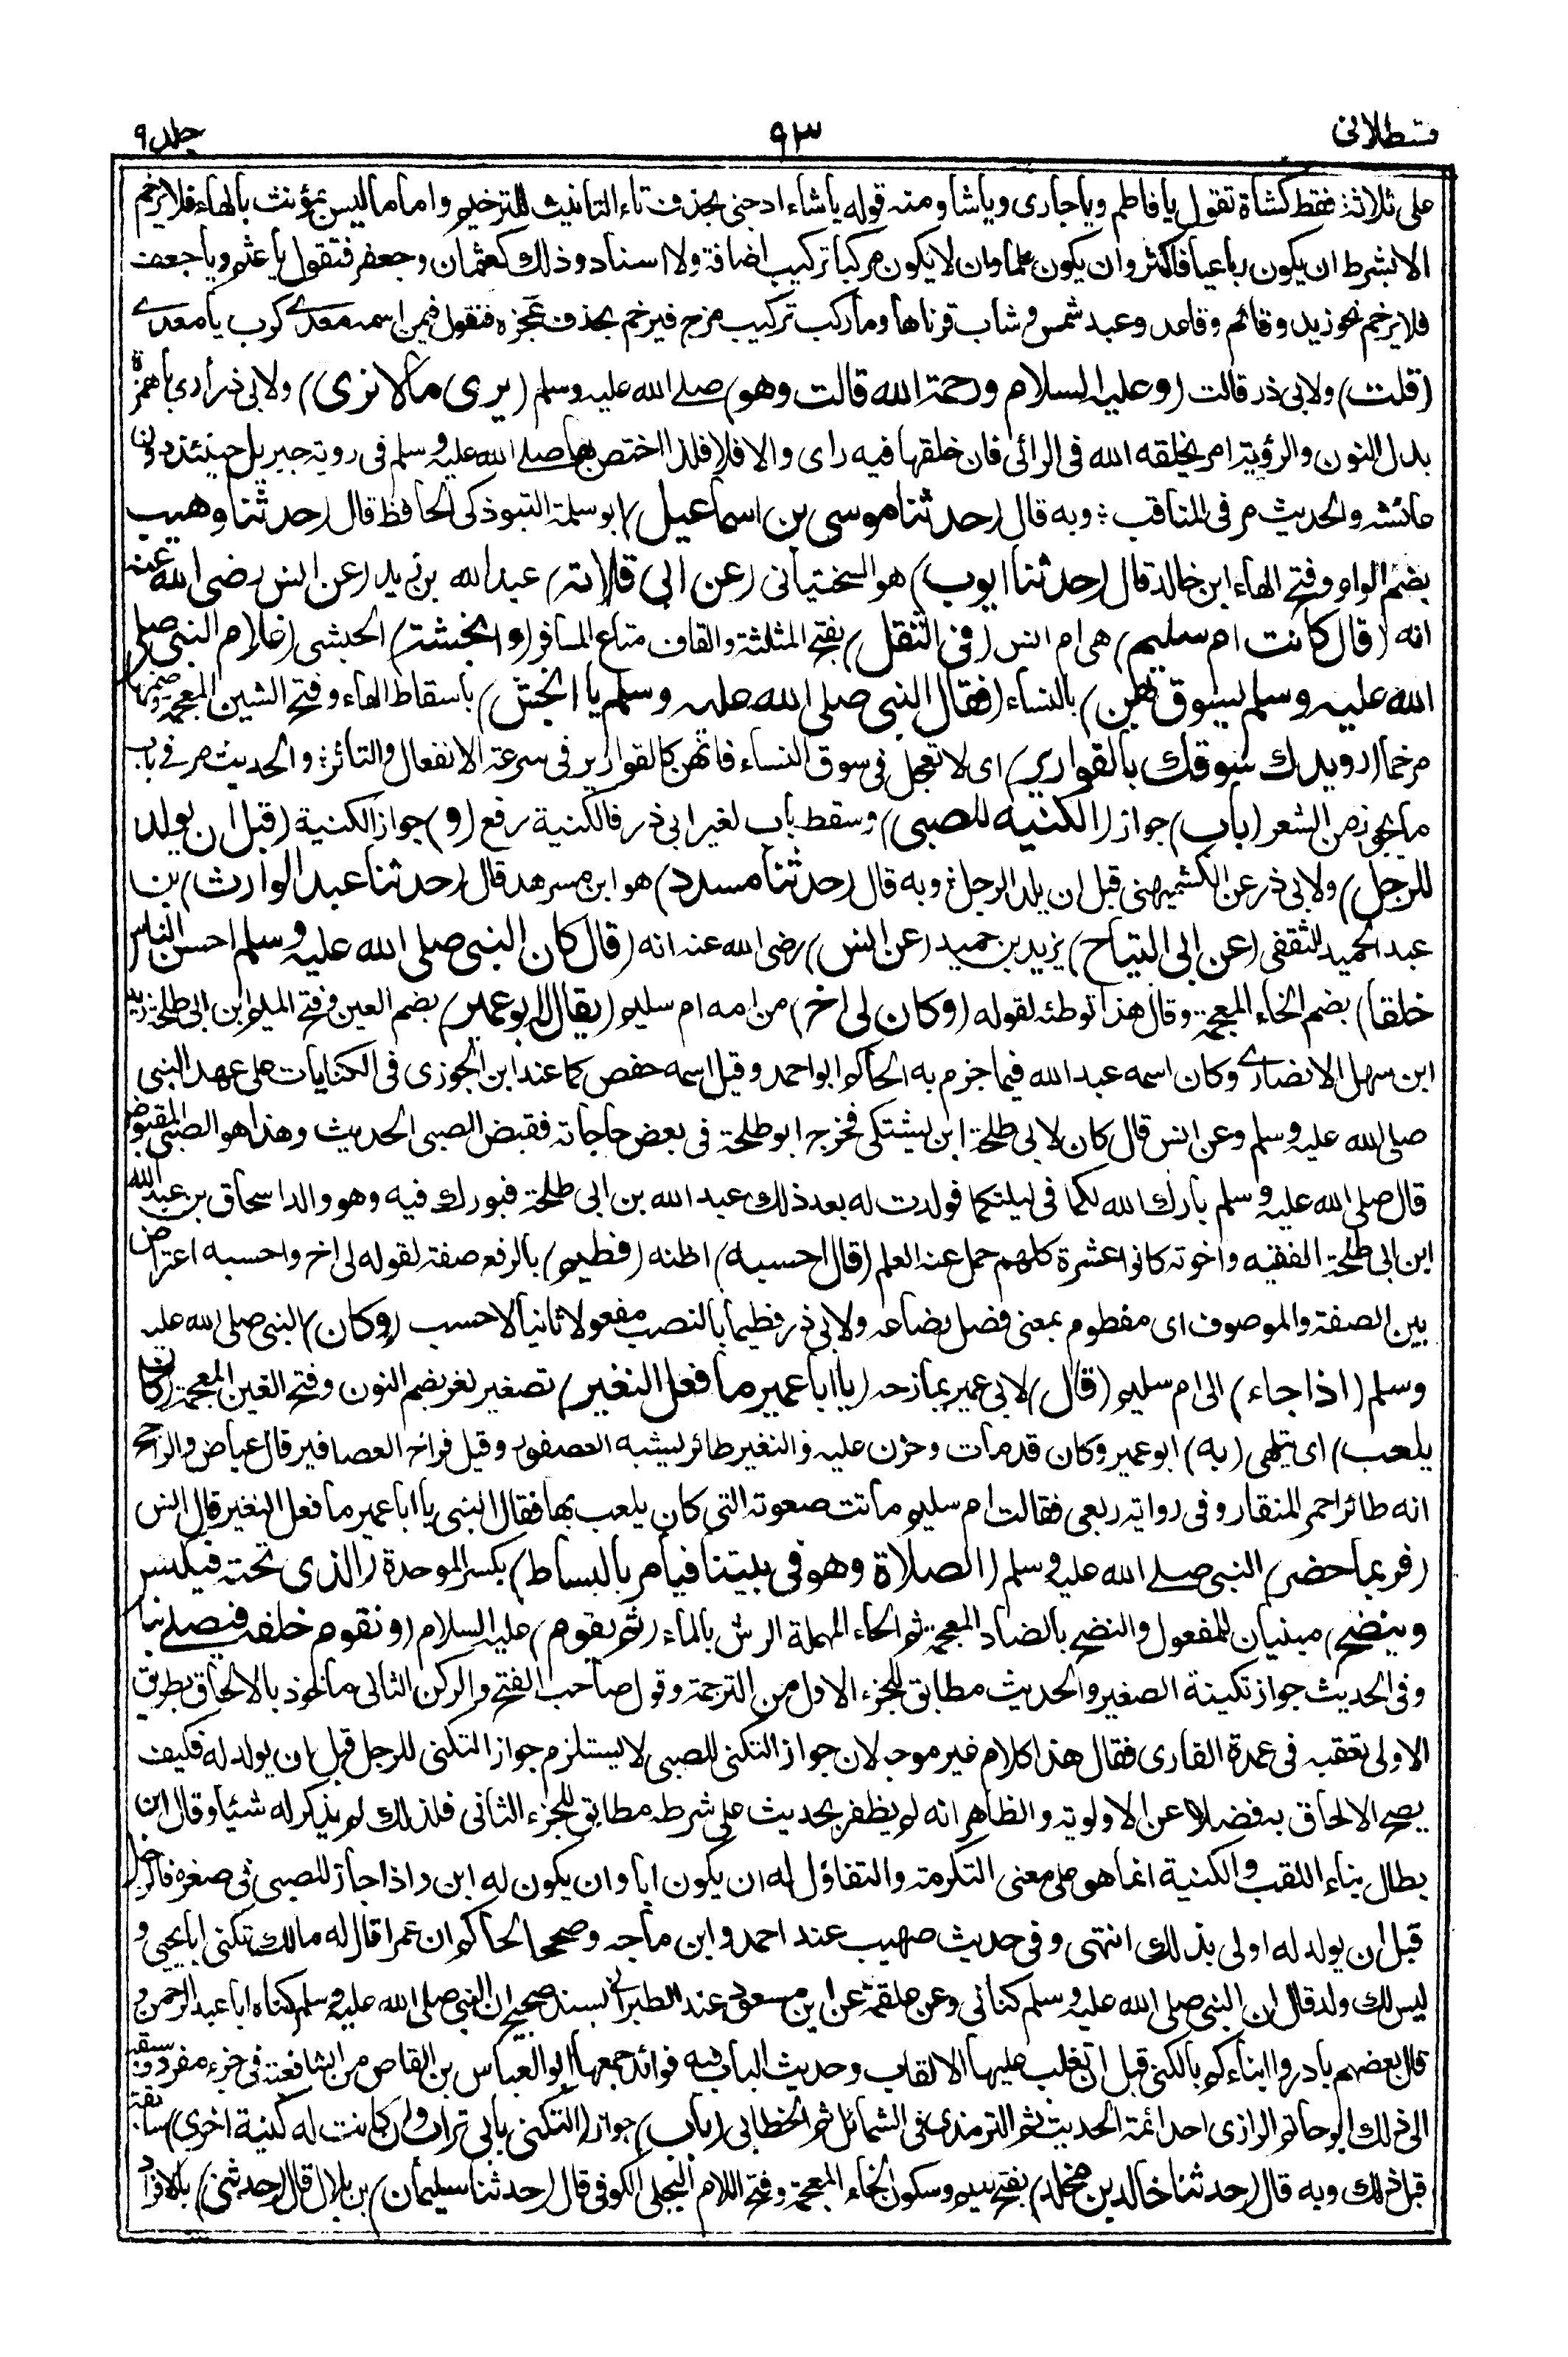 قسطلانی ٩٣ جلد ٩
على ثلاثة فقط كشاة تقول يا فاطم ويا جارى ويا شا ومنه قوله يا شاء ادجنى بحذف تاء التانيث للترخيم واما ما ليس بمؤنث بالهاء فلا يرخم
الا بشرط ان يكون رباعيا فاكثر وان يكون علما وان لا يكون مركبا تركيب اضافة ولا اسناد وذلك كعثمان وجعفر فتقول يا عثم ويا جعف
فلا يرخم نحو زيد وقائم وقاعد وعبد شمس وشاب قرناها وما ركب تركيب مزج فيرخم بحذف عجزه فتقول فيمن اسمه معدى كرب يا معدى
(قلت) ولابى ذر قالت (وعليه السلام ورحمة الله قالت وهو) صلى الله عليه وسلم (يرى ما لا نرى) ولابى ذر أرى بالهمزة
بدل النون والرؤية امر يخلقه الله فى الرائى فان خلقها فيه راى والا فلا فلذا اختص بها صلى الله عليه وسلم فى روية جبريل حينئذ دون
عائشه والحديث مر فى المناقب ؛ وبه قال (حدثنا موسى بن اسماعيل) ابو سلمة التبوذكى الحافظ قال (حدثنا وهيب
بضم الواو وفتح الهاء ابن خالد قال (حدثنا ايوب) هو السختيانى (عن ابى قلابة) عبد الله بن زيد (عن انس رضى الله عنه
انه (قال كانت ام سليم) هى ام انس (فى الثقل) بفتح المثلثة والقاف متاع المسافر (وانجشة) الحبشى (غلام النبى صلى
الله عليه وسلم يسوق بهن) بالنساء (فقال النبى صلى الله عليه وسلم يا انجش) باسقاط الهاء وفتح الشين المعجمة وضمها
مرخما (رويدك سوقك بالقوارير) اى لا تعجل فى سوق النساء فانهن كالقوارير فى سرعة الانفعال والتاثر ؛ والحديث مر فى باب
ما يجوز من الشعر (باب) جواز (الكنيه للصبى) وسقط باب لغير ابى ذر فالكنية رفع (و) جواز الكنية (قبل ان يولد
للرجل) ولابى ذر عن الكشميهنى قبل ان يلد الرجل ؛ وبه قال (حدثنا مسدد) هو ابن مسرهد قال (حدثنا عبد الوارث) بن
عبد الحميد الثقفى (عن ابى التياح) يزيد بن حميد (عن انس) رضى الله عنه انه (قال كان النبى صلى الله عليه وسلم احسن الناس
خلقا) بضم الخاء المعجمة وقال هذا توطئه لقوله (وكان لى اخ) من امه ام سليم (يقال له ابو عمير) بضم العين وفتح الميم ابن ابى طلحة زيد
ابن سهل الانصارى وكان اسمه عبد الله فيما جزم به الحاكم ابو احمد وقيل اسمه حفص كما عند ابن الجوزى فى الكنايات على عهد النبى
صلى الله عليه وسلم وعن انس قال كان لابى طلحة ابن يشتكى فخرج ابو طلحة فى بعض حاجاته فقبض الصبى الحديث وهذا هو الصبى المقبوض
قال صلى الله عليه وسلم بارك الله لكما فى ليلتكما فولدت له بعد ذلك عبد الله بن ابى طلحة فبورك فيه وهو والد اسحاق بن عبد الله
ابن ابى طلحة الفقيه واخوته كانوا عشرة كلهم حمل عنه العلم (قال احسبه) اظنه (فطيم) بالرفع صفة لقوله لى اخ واحسبه اعتراض
بين الصفة والموصوف اى مفطوم بمعنى فصل رضاعه ولابى ذر فطيما بالنصب مفعولا ثانيا لاحسب (وكان) النبى صلى الله عليه
وسلم (اذا جاء) الى ام سليم (قال) لابى عمير يمازحه (يا ابا عمير ما فعل النغير) تصغير نغر بضم النون وفتح الغين المعجمة (كان
يلعب) اى يتلهى (به) ابو عمير وكان قد مات وحزن عليه والنغير طائر يشبه العصفور وقيل فراخ العصافير قال عياض والراجح
انه طائر احمر المنقار وفى رواية ربعى فقالت ام سليم ماتت صعوته التى كان يلعب بها فقال النبى يا ابا عمير ما فعل النغير قال انس
(فربما حضر) النبى صلى الله عليه وسلم (الصلاة وهو فى بيتنا فيامر بالبساط) بكسر الموحدة (الذى تحته فيكنس
وينضح) مبنيان للمفعول والنضح بالضاد المعجمة ثم الحاء المهملة الرش بالماء (ثم يقوم) عليه السلام (ونقوم خلفه فيصلى بنا
وفى الحديث جواز تكنية الصغير والحديث مطابق للجزء الاول من الترجمة وقول صاحب الفتح والركن الثانى ماخوذ بالالحاق بطريق
الاولى تعقبه فى عمدة القارى فقال هذا كلام غير موجه لان جواز التكنى للصبى لا يستلزم جواز التكنى للرجل قبل ان يولد له فكيف
يصح الالحاق به فضلا عن الاولوية والظاهر انه لم يظفر بحديث على شرطه مطابق للجزء الثانى فلذلك لم يذكر له شيئا وقال ابن
بطال بناء اللقب والكنية انما هو على معنى التكرمة والتفاؤل له ان يكون ابا وان يكون له ابن واذا جاز للصبى فى صغره فالرجل
قبل ان يولد له اولى بذلك انتهى وفى حديث صهيب عند احمد وابن ماجه وصححه الحاكم ان عمر قال له مالك تكنى ابا يحيى و
ليس لك ولد قال ان النبى صلى الله عليه وسلم كنانى وعن علقمة عن ابن مسعود عند الطبرانى بسند صحيح ان النبى صلى الله عليه وسلم كناه ابا عبد الرحمن و
قال بعضهم بادروا ابناءكم بالكنى قبل ان تغلب عليها الالقاب وحديث الباب فيه فوائد جمعها ابو العباس بن القاص من الشافعية فى جزء مفرد وسبقه
الى ذلك ابو حاتم الرازى احد ائمة الحديث ثم الترمذى فى الشمائل ثم الخطابى (باب) جواز (التكنى بابى تراب وان كانت له كنية اخرى) سابقة
قبل ذلك وبه قال (حدثنا خالد بن مخلد) بفتح ميم وسكون الخاء المعجمة وفتح اللام البجلى الكوفى قال (حدثنا سليمان) بن بلال قال (حدثنى) بالافراد